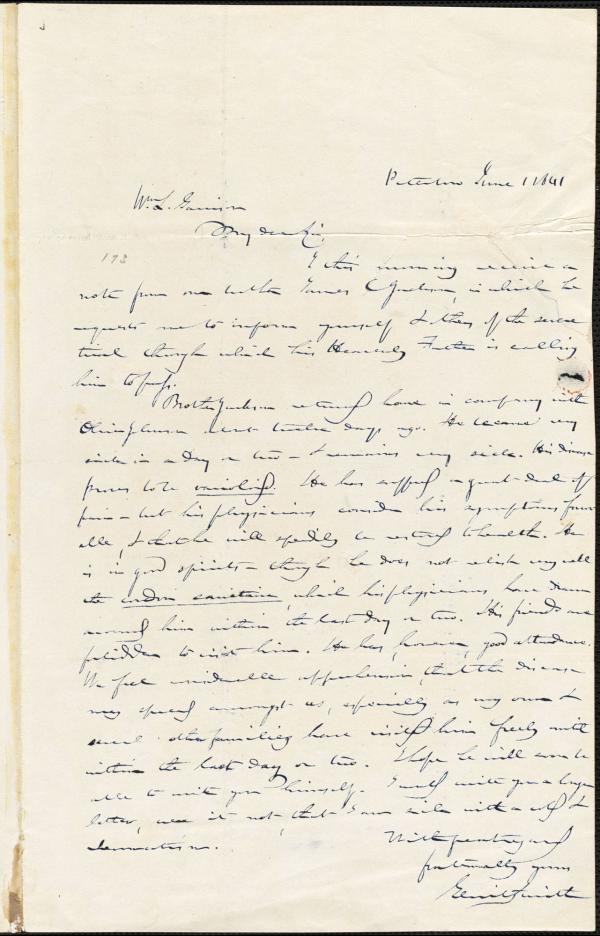 Peterboro June 1 1841
Wm. L. Garrison
My dear Sir,
193
I this morning receive a
note from our brother James C Jackson, in which he
requests me to inform yourself & others of the severe
trial through which his Heavenly Father is calling
him to pass.
Brother Jackson returned home in company with
Oliver Johnson about twelve days ago. He became very
sick in a day or two — & remains very sick. His disease
proves to be varioloid. He has suffered a great deal of
pain — but his physicians consider his symptoms favor
able, & that he will speedily be restored to health. He
is in good spirits — though he does not relish very well
the cordon sanitaire, which his physicians have drawn
around him within the last day or two. His friends are
forbidden to visit him. He has, however, good attendance.
We feel considerable apprehension, that the disease
may spread amongst us, especially as my own &
several other families have visited him freely until
within the last day or two. I hope he will soon be
able to write you himself. I would write you a longer
letter, were it not, that I am sick with a cold &
rheumatism.
With great regard
fraternally yours
Gerrit Smith